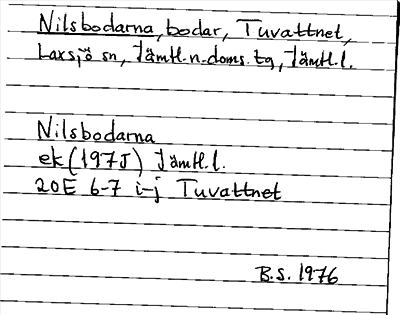 Nilsbodarna, bodar, Tuvattnet,
Laxsjö sn, Jämtl.n.doms.tg, Jämtl.l.
Nilsbodarna
ek (197J) Jämtl.l.
20E 6-7 i-j Tuvattnet
B.S. 1976